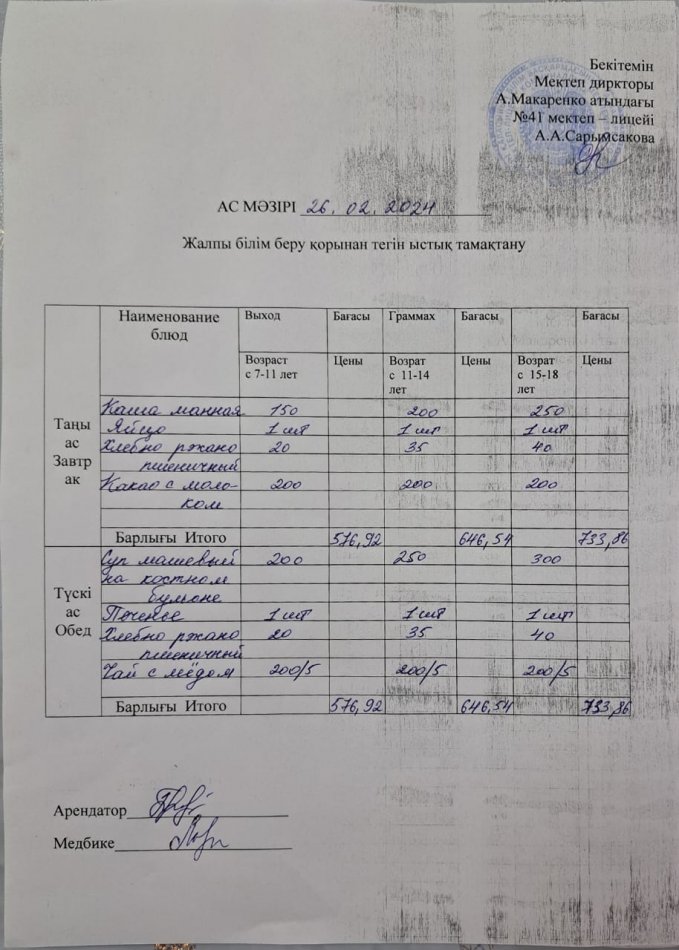 Бекітемін
Мектеп диркторы
А.Макаренко атындағы
№41 мектеп – лицейі
А.А.Сарымсакова
АС МӘЗІРІ 26.02.2024
Жалпы білім беру қорынан тегін ыстық тамақтану
Наименование Выход Бағасы Граммах Бағасы Бағасы
блюд
Возраст Цены Возрат Цены Возрат Цены
с 7-11 лет с 11-14 с 15-18
лет лет
Таңы
ас
Завтр
ак
Каша манная 150 200 250
Яйцо 1 шт 1 шт 1 шт
Хлебно ржано 20 35 40
пшеничный
Какао с моло- 200 200 200
ком
Барлығы Итого 576,92 646,54 733,86
Түскі
ас
Обед
Суп машевый 200 250 300
на костном
бульоне
Печенье 1 шт 1 шт 1 шт
Хлебно ржано 20 35 40
пшеничный
Чай с мёдом 200/5 200/5 200/5
Барлығы Итого 576,92 646,54 733,86
Арендатор
Медбике